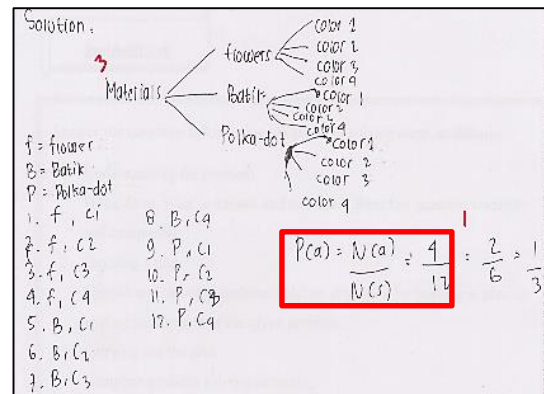 Solution:
3
Materials
flowers
color 1
color 2
color 3
color 4
Batik
color 1
color 2
color 2
color 4
Polka-dot
color 1
color 2
color 3
color 4
f = flower
B = Batik
P = Polka-dot
1. f, C1
2. f, C2
3. f, C3
4. f, C4
5. B, C1
6. B, C2
7. B, C3
8. B, C4
9. P, C1
10. P, C2
11. P, C3
12. P, C4
1
P(a) = N(a) / N(s) = 4 / 12 = 2 / 6 = 1 / 3